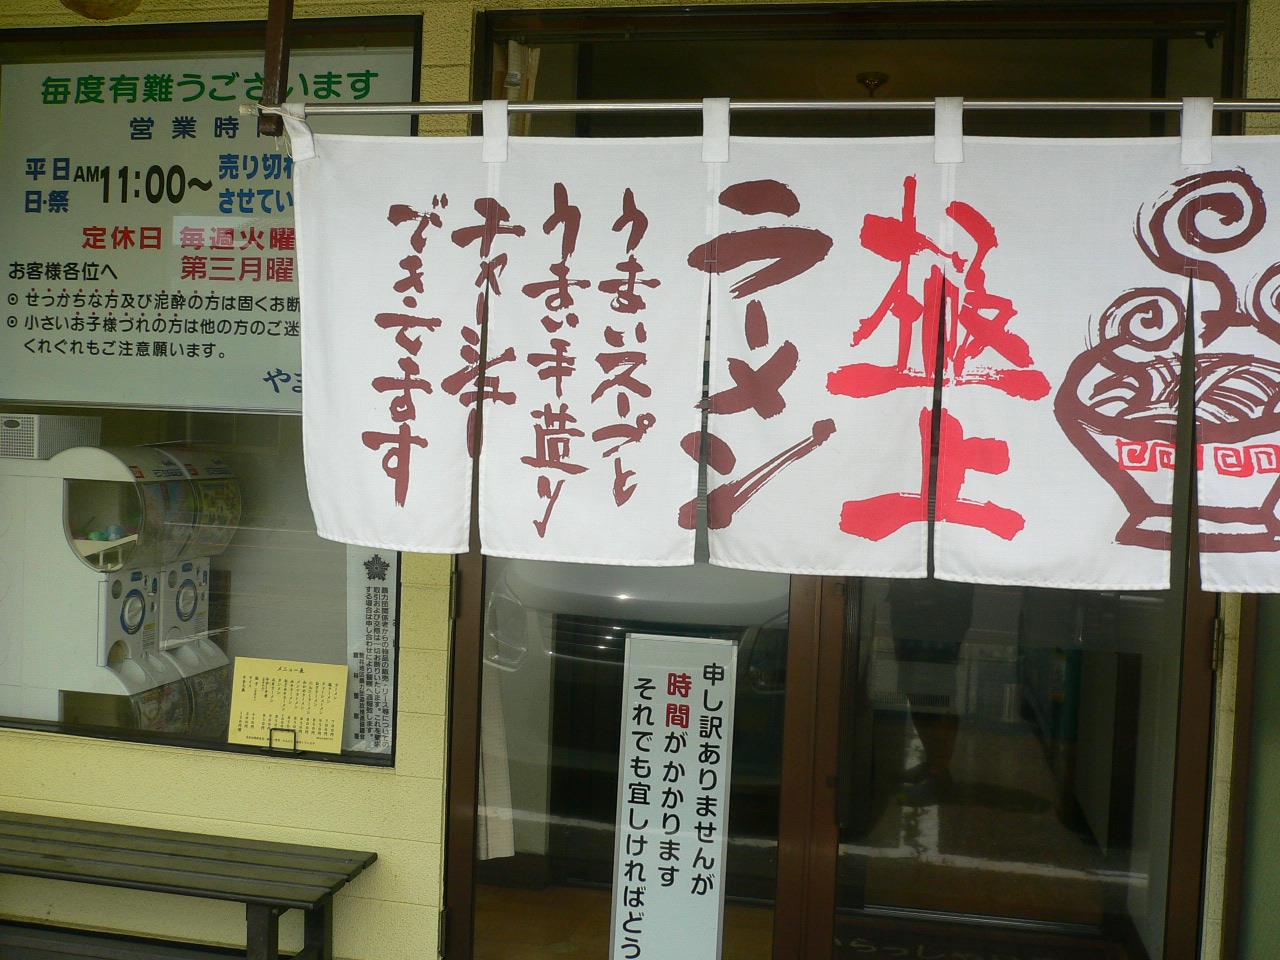 毎度有難うございます
営業時
平日 AM11:00〜 売り切れ
日・祭 させてい
定休日 毎週火曜
第三月曜
お客様各位へ
◎せっかちな方及び泥酔の方は固くお断
◎小さいお子様づれの方は他の方のご迷
くれぐれもご注意願います。
や
極上
ラーメン
うまいスープと
うまい手造り
チャーシュー
できてます
メニュー表
申し訳ありませんが
時間がかかります
それでも宜しければどう